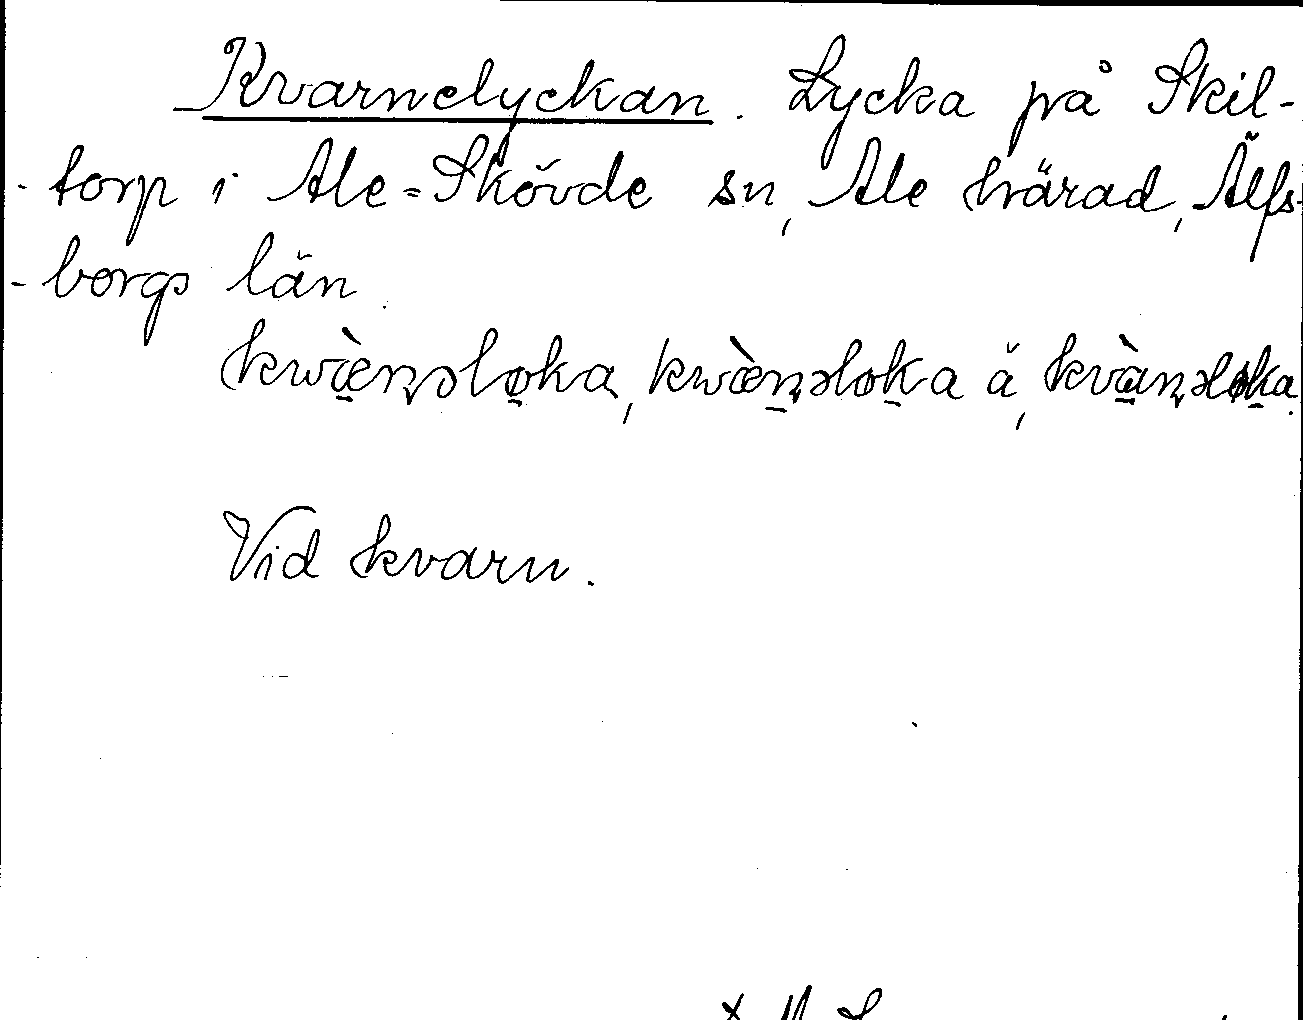 Kvarnelyckan. Lycka på Skil-
-torp i Ale=Skövde sn, Ale härad, Älfs-
-borgs län.
kwæ̀ṇəlo̱ka, kwæ̀ṇəloḵa å, kvàṇəloḵa.
Vid kvarn.